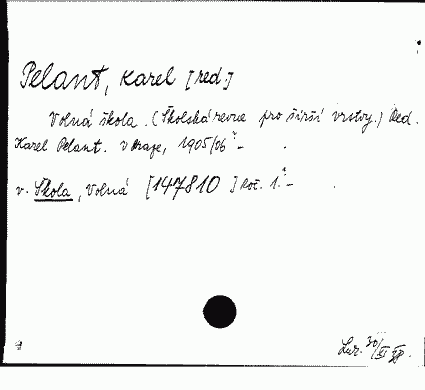 Pelant, Karel [red.]
Volná škola. (Školská revue pro širší vrstvy.) Red.
Karel Pelant. V Praze, 1905/06 -
v. Škola, Volná [147810] Roč. 1. -
30/XI